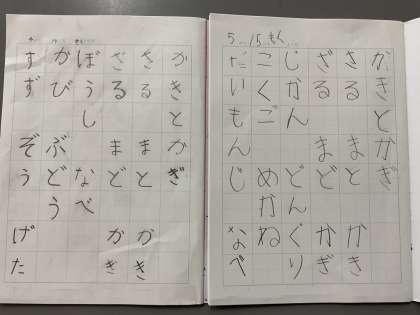 5 15 もく
かきとかぎ
さる まと かき
ざる まど かぎ
じかん どんぐり
こくご めがね
だいもんじ なべ
かきとかぎ
さる まと かき
ざる まど かぎ
ぼうし なべ
かび ぶどう
すず ぞう げた